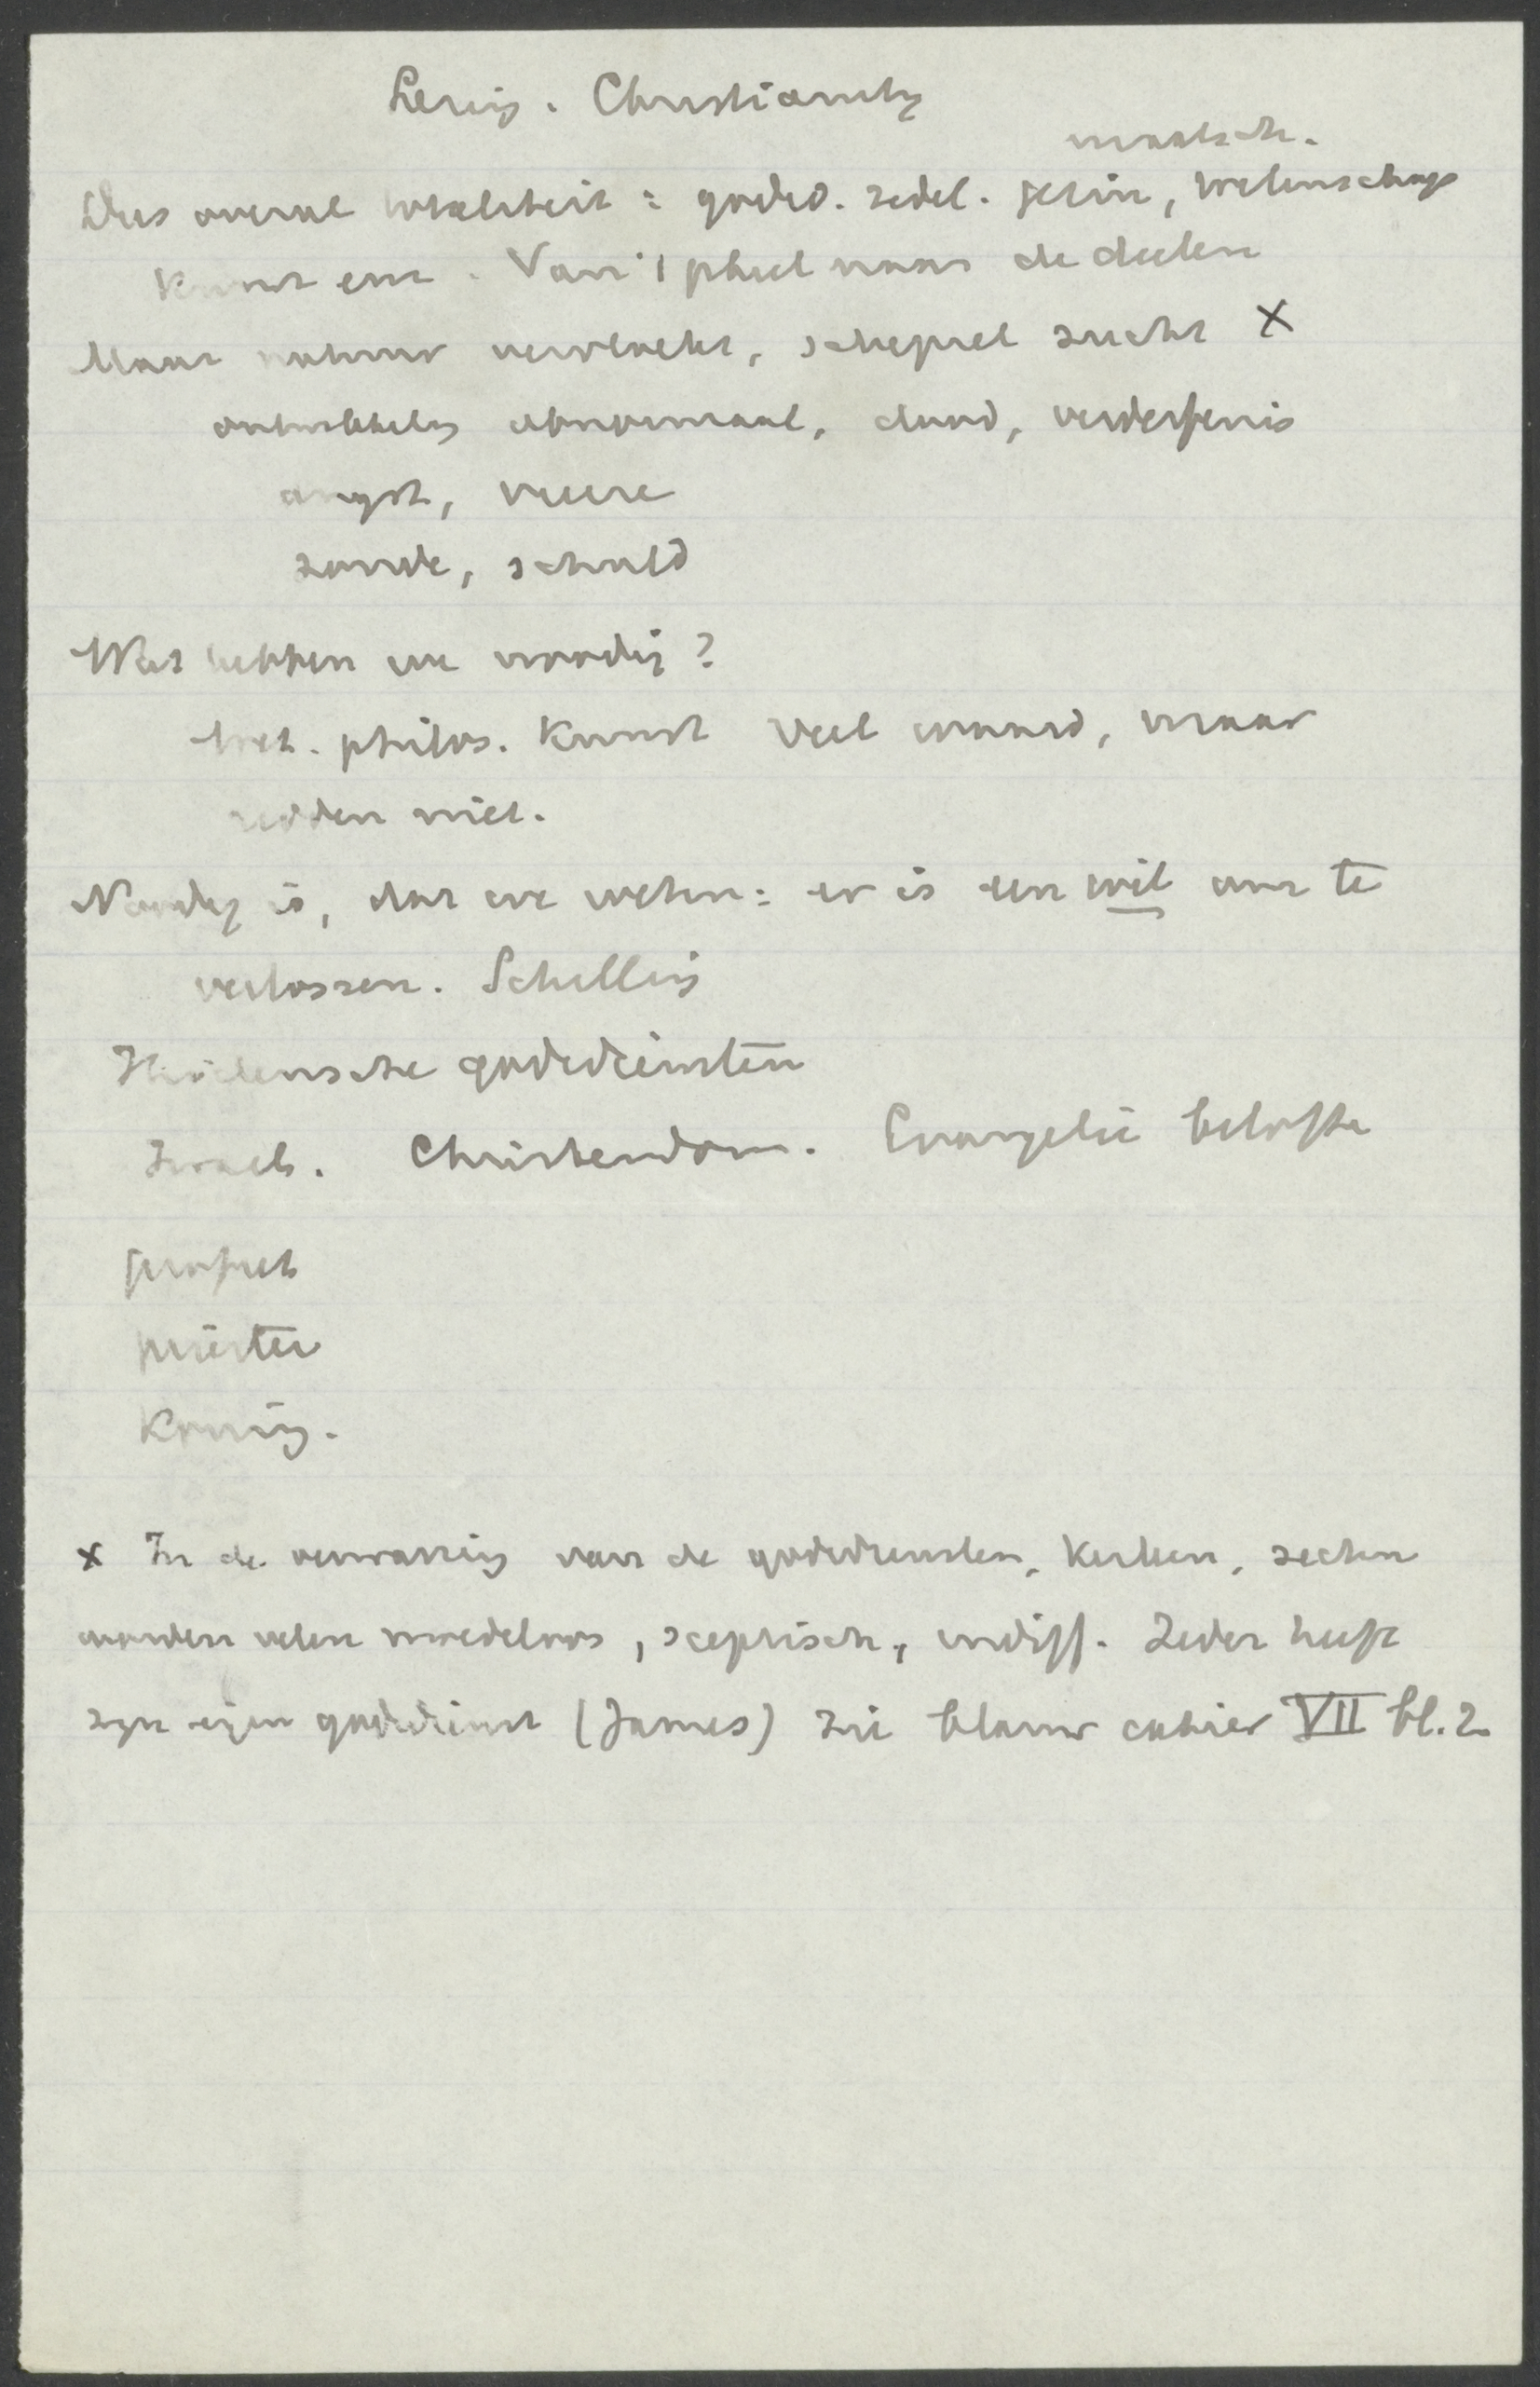 Lezing. Christianity
maatsch.
Dus overal totaliteit: godsd. zedel. gezin, wetenschap
kunst enz. Van 't geheel naar de deelen
Maar natuur vervloekt, schepsel zucht ×
ontwikkeling abnormaal, dood, verderfenis
angst, vreeze
zonde, schuld
Wat hebben we noodig?
Wet. philos. kunst veel waard, maar
redden niet.
Noodig is, dat we weten: er is een wil om te
verlossen. Schelling
Heidensche godsdiensten
Israels. Christendom. Evangelie belofte
profeet
priester
Koning.
× In de verwarring van de godsdiensten, kerken, secten
worden velen moedeloos, sceptisch, indiff. Ieder heeft
zijn eigen godsdienst (James) zie blauw cahier VII bl. 2